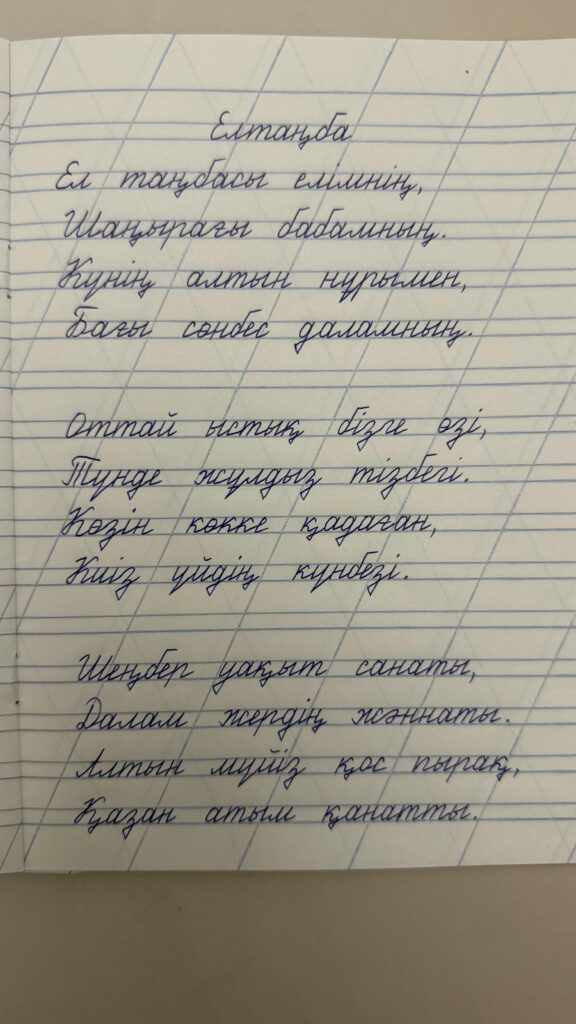 Елтаңба
Ел таңбасы елімнің,
Шаңырағы бабамның.
Күнің алтын нұрымен,
Бағы сөнбес даламның.
Оттай ыстық бізге өзі,
Түнде жұлдыз тізбегі.
Көзін көкке қадаған,
Киіз үйдің күнбезі.
Шеңбер уақыт санаты,
Далам жердің жәннаты.
Алтын мүйіз қос пырақ,
Қазан атым қанатты.